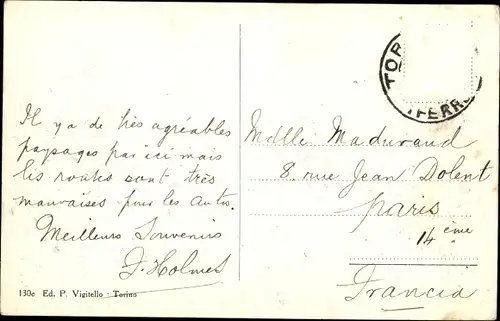 Il y a de très agréables
paysages par ici mais
les routes sont très
mauvaises pour les autos.
Meilleurs Souvenirs
J. Holmes
130c Ed. P. Vigitello - Torino
TOR
FERR
Mdlle Madurand
8. rue Jean Dolent
Paris
14 ème
Francia